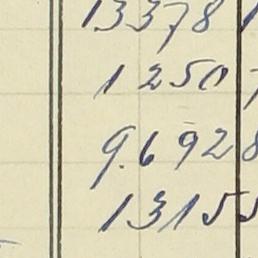 13378 1
1250 7
9.692 8
1315 5